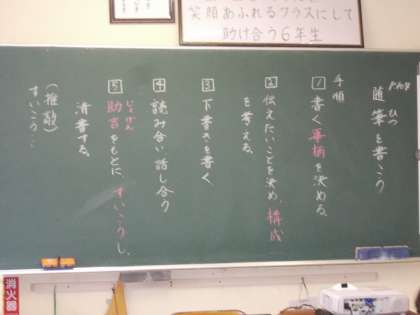 笑顔あふれるクラスにして
助け合う6年生
ずいひつ
随筆を書こう
手順
1 書く事柄を決める。
2 伝えたいことを決め、構成
を考える。
3 下書きを書く。
4 読み合い話し合う
じょげん
5 助言をもとに、すいこうし、
清書する。
(推敲)
すいこう:
消火器